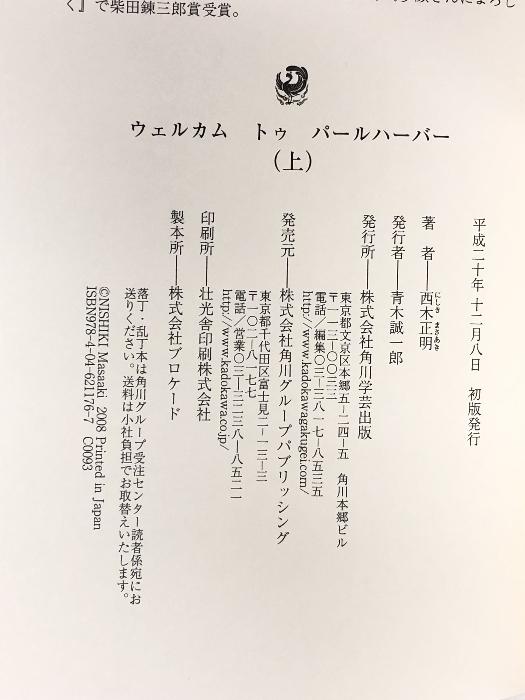 く』で柴田錬三郎賞受賞。
ウェルカム　トゥ　パールハーバー
（上）
平成二十年十二月八日　初版発行
著　者――西木正明
にしき　まさあき
発行者――青木誠一郎
発行所――株式会社角川学芸出版
東京都文京区本郷五-二四-五　角川本郷ビル
〒一一三-〇〇三三
電話／編集〇三-三八一七-八五三五
http://www.kadokawagakugei.com/
発売元――株式会社角川グループパブリッシング
東京都千代田区富士見二-一三-三
〒一〇二-八一七七
電話／営業〇三-三二三八-八五二一
http://www.kadokawa.co.jp/
印刷所――壮光舎印刷株式会社
製本所――株式会社ブロケード
落丁・乱丁本は角川グループ受注センター読者係宛にお
送りください。送料は小社負担でお取替えいたします。
©NISHIKI Masaaki 2008 Printed in Japan
ISBN978-4-04-621176-7 C0093